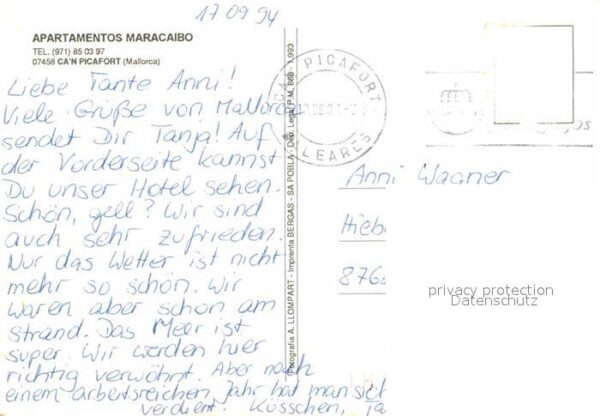 17.09.94
APARTAMENTOS MARACAIBO
TEL. (971) 85 03 97
07458 CA'N PICAFORT (Mallorca)
Liebe Tante Anni!
Viele Grüße von Mallorca
sendet Dir Tanja! Auf
der Vorderseite kannst
Du unser Hotel sehen.
Schön, gell? Wir sind
auch sehr zufrieden.
Nur das Wetter ist nicht
mehr so schön. Wir
waren aber schon am
Strand. Das Meer ist
super. Wir werden hier
richtig verwöhnt. Aber nach
einem arbeitsreichen Jahr hat man sich
verdient. Küsschen, Ta
Fotografia A. LLOMPART - Imprenta BERGAS - SA POBLA - Dep. Legal P.M. 669 - 1.993
PICAFORT
BALEARES
Anni Wagner
Hieb
876
privacy protection
Datenschutz